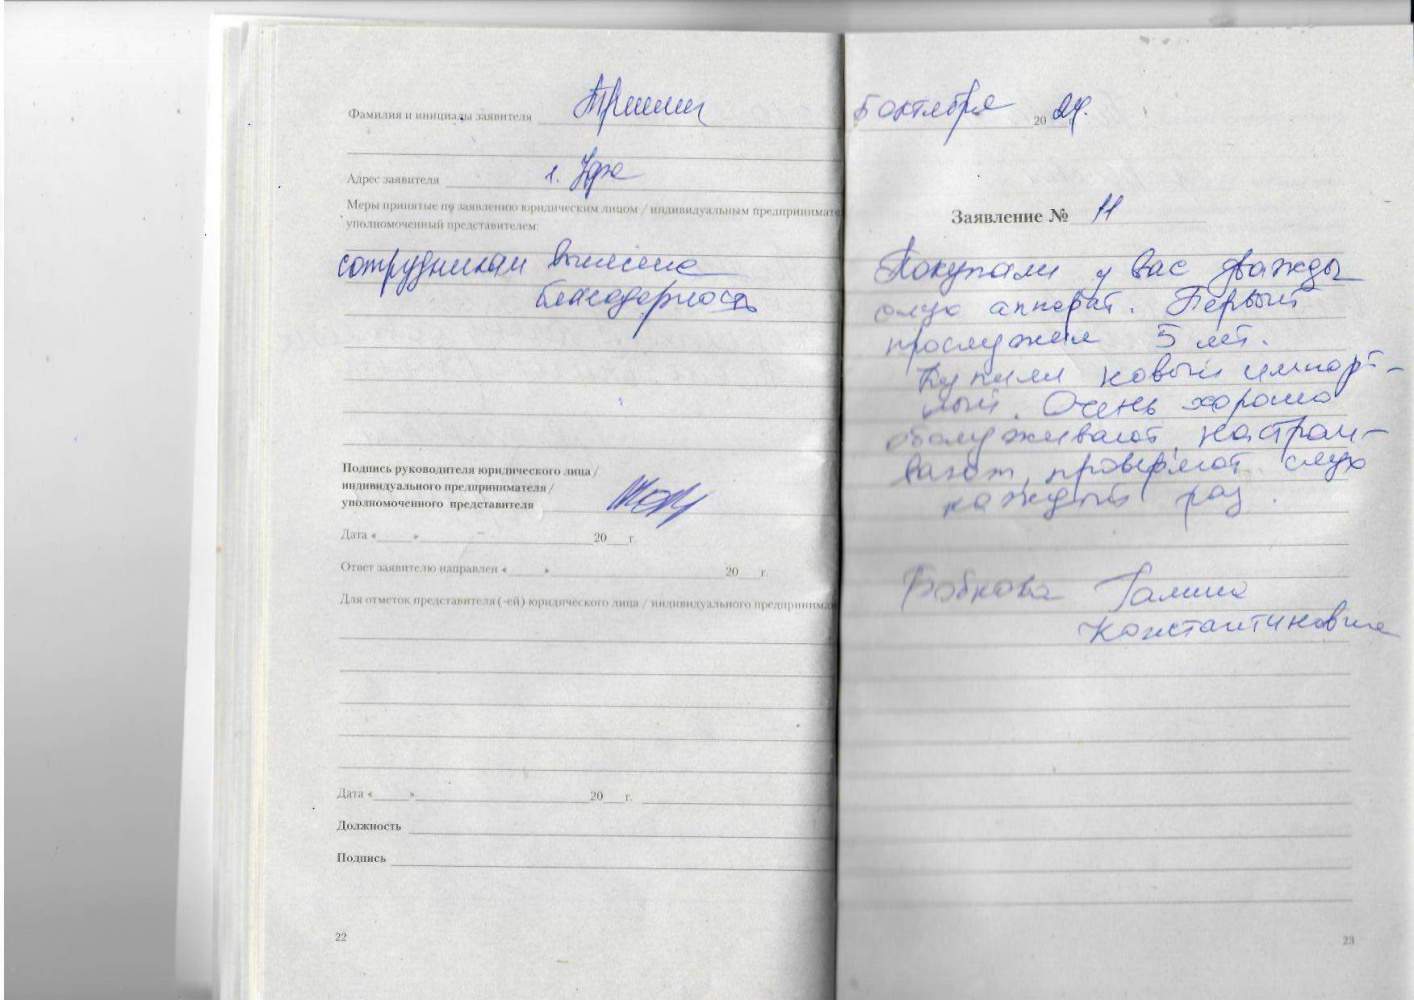 Фамилия и инициалы заявителя Тришин
Адрес заявителя г. Уфа
Меры принятые по заявлению юридическим лицом / индивидуальным предпринимате
уполномоченный представителем:
сотрудникам вынесена
благодарность
Подпись руководителя юридического лица /
индивидуального предпринимателя /
уполномоченного представителя
Дата «______»______20___г.
Ответ заявителю направлен «______»______20___г.
Для отметок представителя (-ей) юридического лица / индивидуального предпринима
Дата «______»______20___г.
Должность
Подпись
22
5 октября 2024.
Заявление № 11
Покупали у вас дважды
слух аппарат. Первый
прослужил 5 лет.
Купили новый импорт-
ный. Очень хорошо
обслуживают, настраи-
вают, проверяют слух
каждый раз.
Бобкова Галина
Константиновна
23